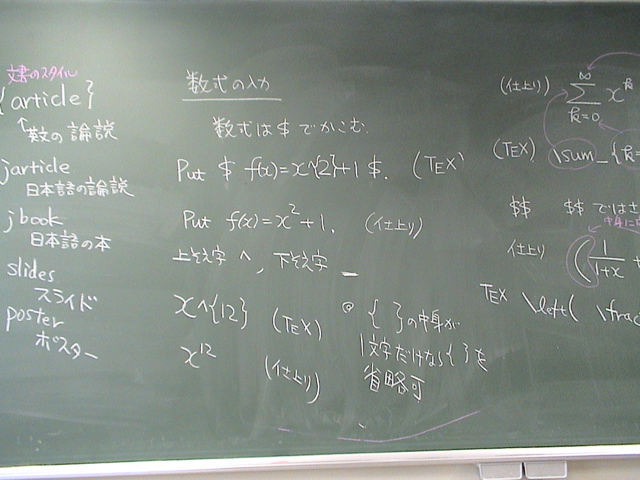 文書のスタイル
{article}
↑英文の論説
jarticle
日本語の論説
jbook
日本語の本
slides
スライド
poster
ポスター
数式の入力
数式は$でかこむ.
Put $ f(x)=x^{2}+1 $. (TEX)
Put f(x)=x²+1. (仕上り)
上そえ字 ^, 下そえ字 _
x^{12} (TEX)
x¹² (仕上り)
{ }の中身が
1文字だけなら{ }を
省略可
(仕上り) ∞
∑ x^k
k=0
(TEX) \sum_{k=
$$ $$では
仕上り ( 1/1+x +
TEX \left( \frac